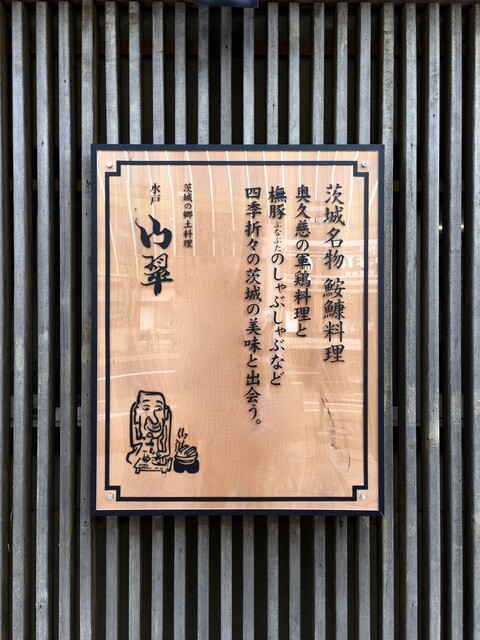 茨城名物 鮟鱇料理
奥久慈の軍鶏料理と
橅豚ぶなぶたのしゃぶしゃぶなど
四季折々の茨城の美味と出会う。
茨城の郷土料理
水戸 山翠